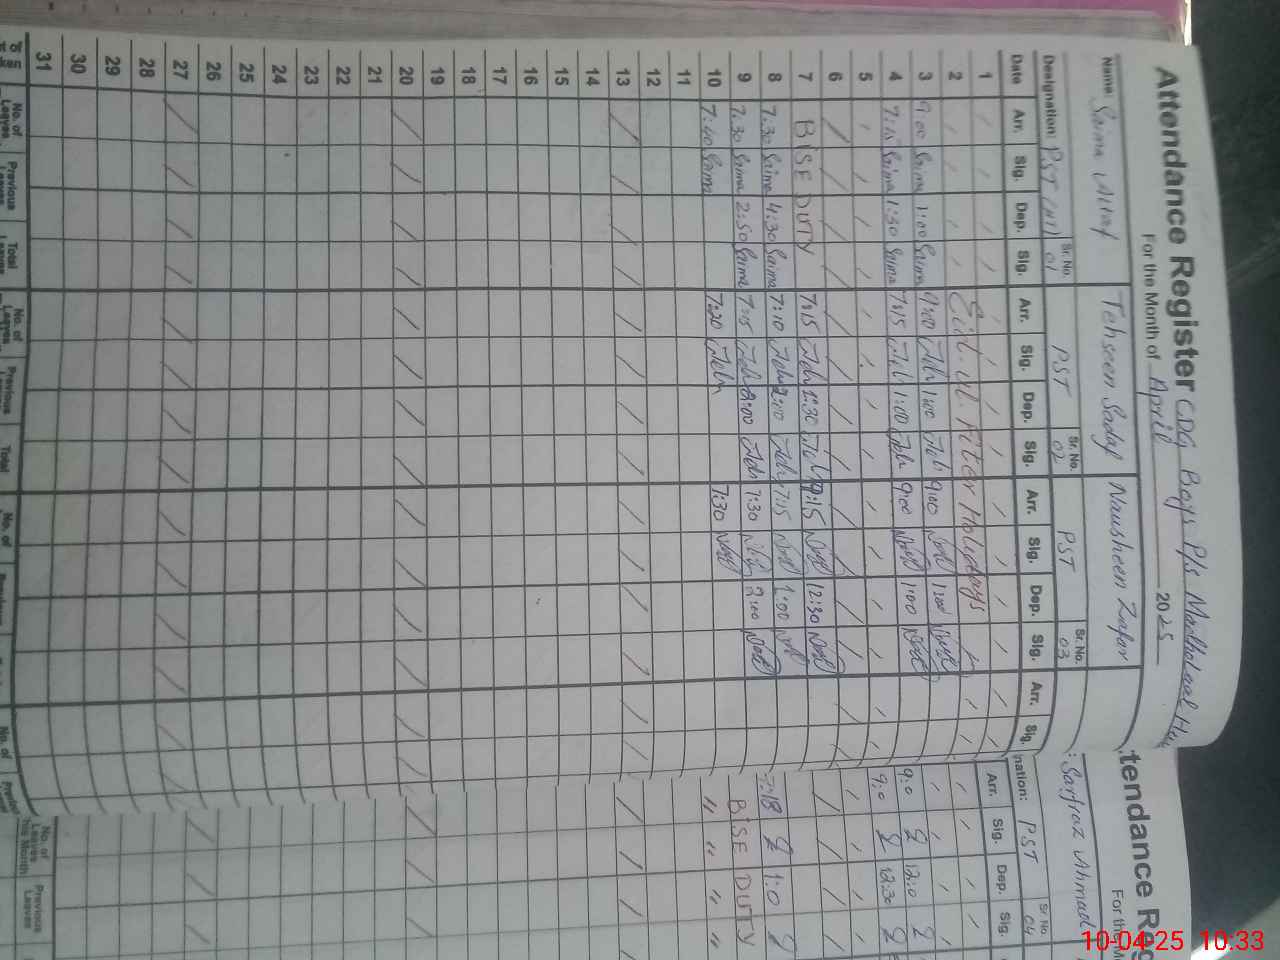 Attendance Register CDG Boys P/s
For the Month of April 2025
Name: Saima Altaf
Tehseen Sadaf
Nausheen Zafar
Designation: PST (HT) Sr. No. 01
PST Sr. No. 02
PST Sr. No. 03
Date Arr. Sig. Dep. Sig. Arr. Sig. Dep. Sig. Arr. Sig. Dep. Sig. Arr. Sig.
1
2 Eid-ul-Fiter Holidays
3 9:00 Saima 1:00 Saima 9:00 Teh 1:00 Teh 9:00 1:00
4 7:15 Saima 1:30 Saima 7:15 Teh 1:00 Teh 9:00 1:00
5
6
7 BISE DUTY 7:15 Teh 1:30 Teh 9:15 12:30
8 7:30 Saima 4:30 Saima 7:10 Teh 2:00 Teh 7:15 1:00
9 7:30 Saima 2:50 Saima 7:15 Teh 2:00 Teh 7:30 2:00
10 7:40 Saima 7:20 Teh 7:30
11
12
13
14
15
16
17
18
19
20
21
22
23
24
25
26
27
28
29
30
31
No. of Leaves Previous Leaves Total Leaves No. of Leaves Previous Total No. of
tendance Re
For the M
: Sarfraz Ahmad
nation: PST Sr. No. 04
Arr. Sig. Dep. Sig.
9:0 12:0
9:0 12:30
7:18 1:0
BISE DUTY
" " " "
No. of Leaves this Month Previous Leaves
10-04-25 10:33